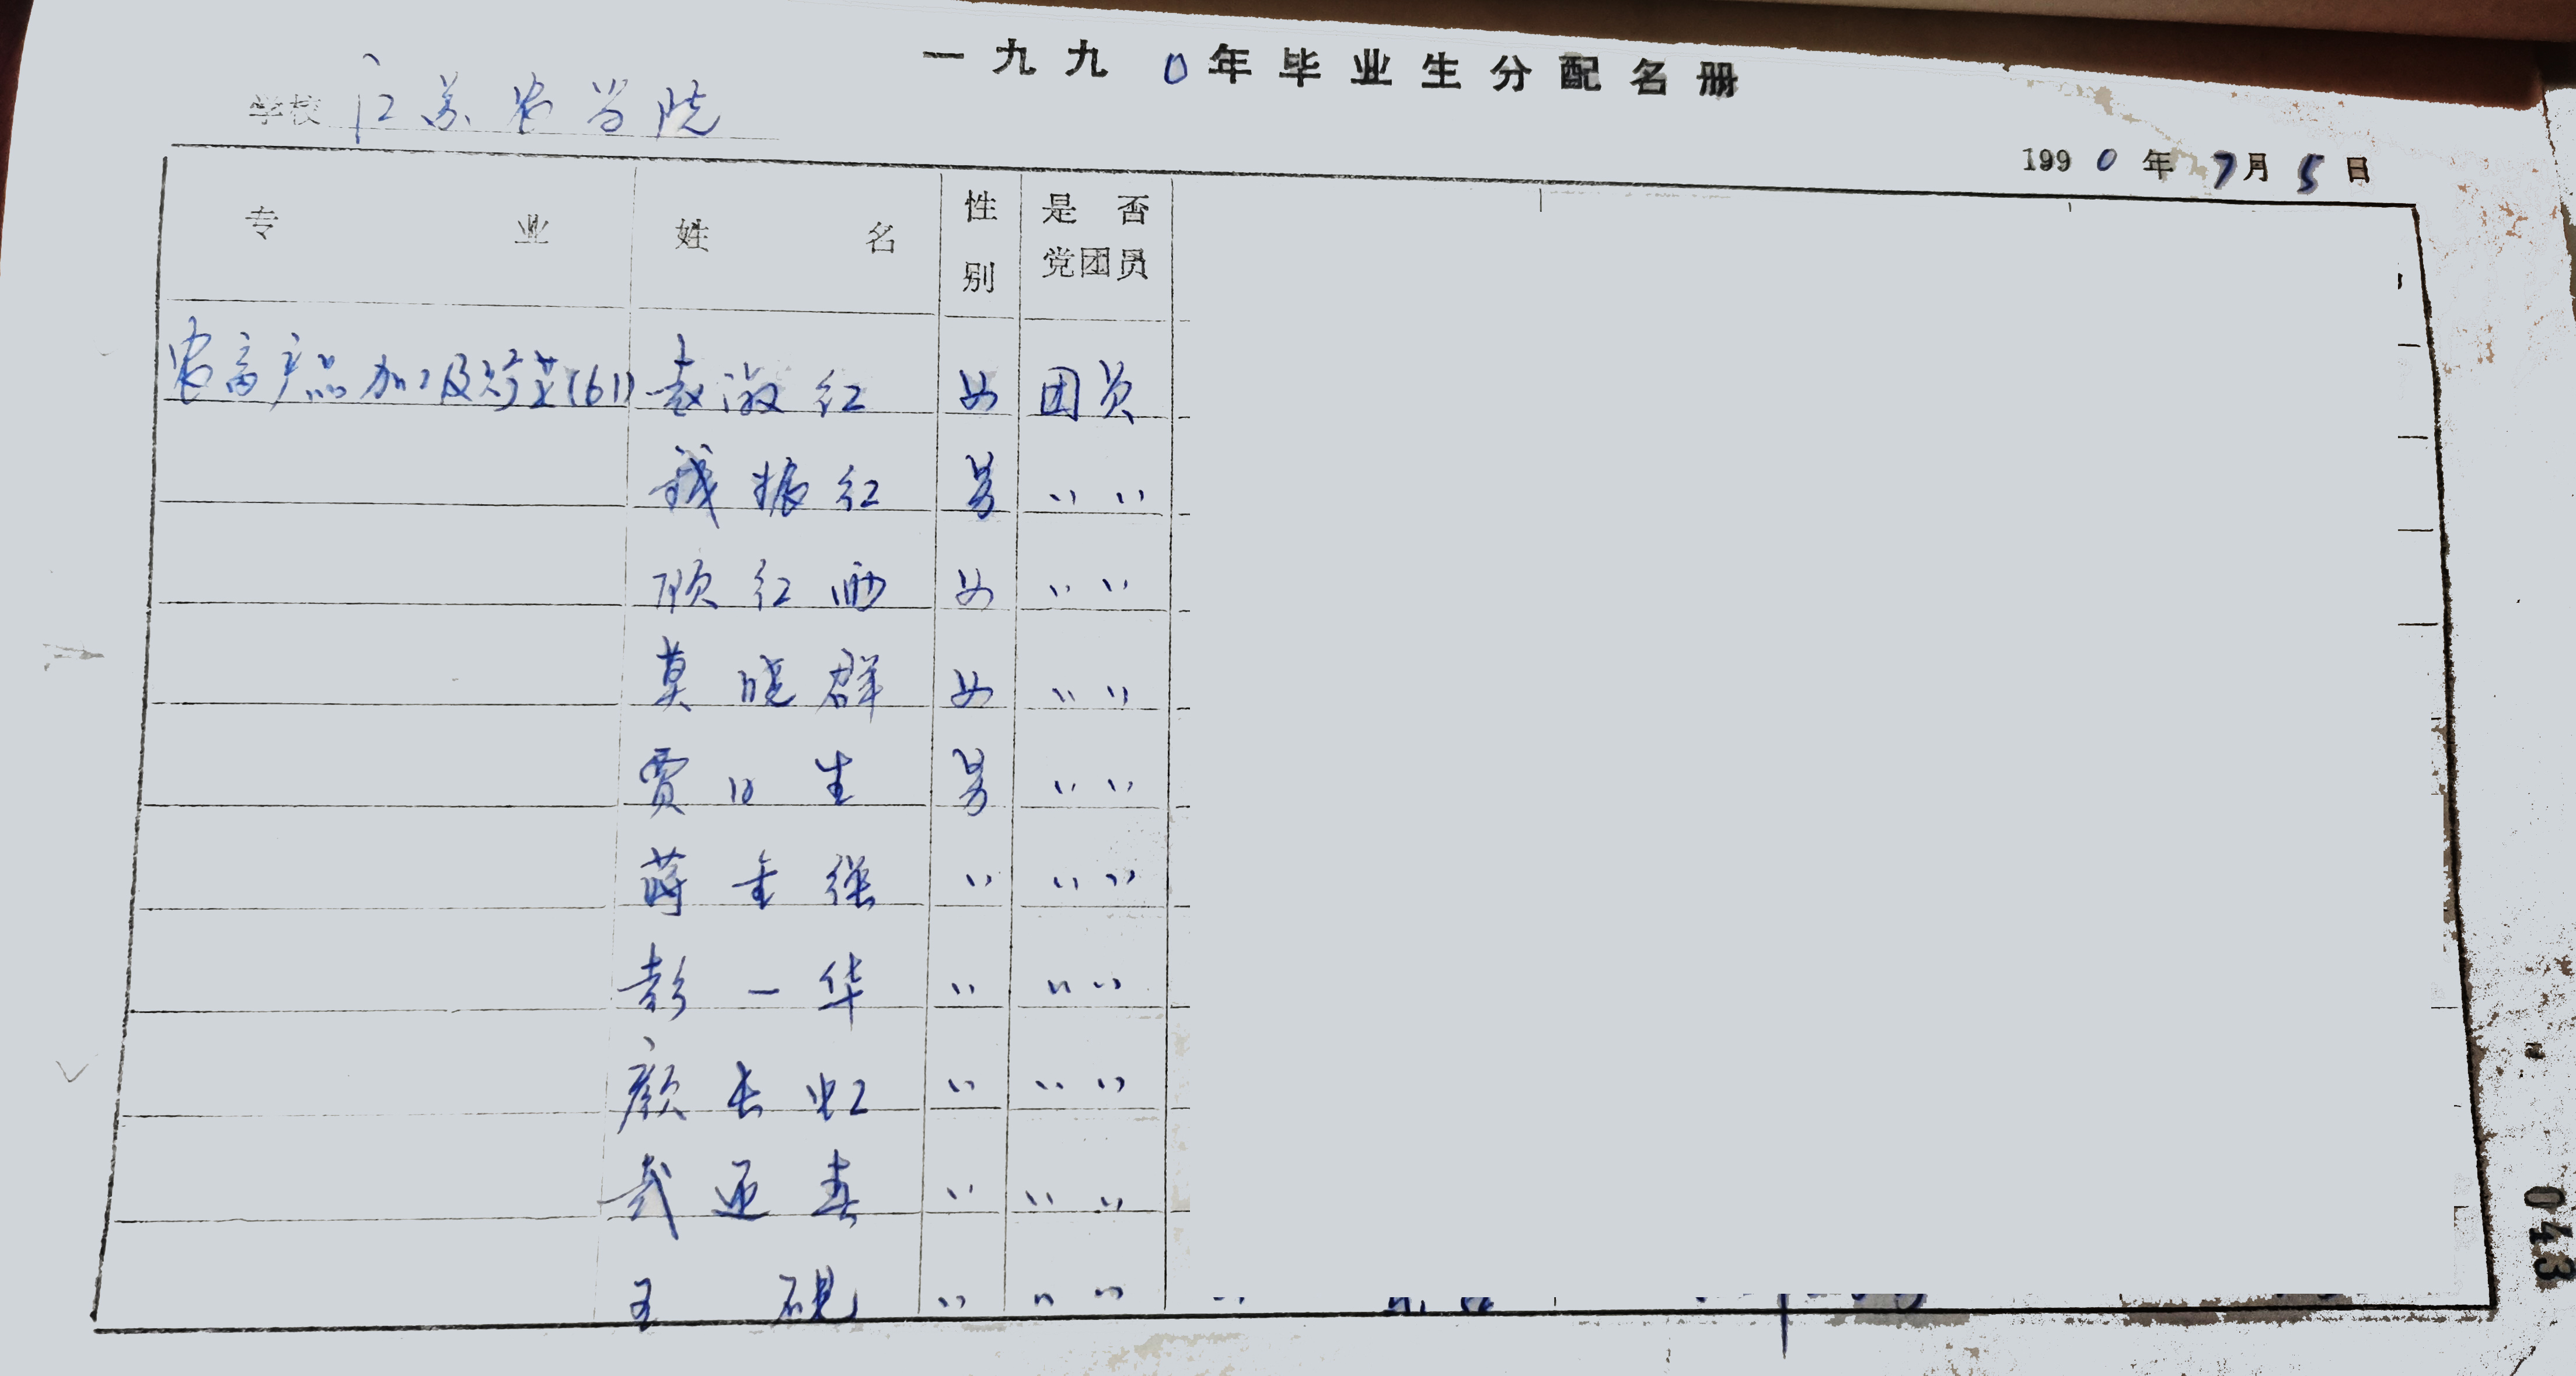 一九九0年毕业生分配名册
学校 江苏农学院
1990年7月5日
专业 姓名 性别 是否党团员
农畜产品加工及烹艺(61) 袁淑红 女 团员
钱振红 男 〃 〃
顾红 女 〃 〃
莫晓群 女 〃 〃
贾日生 男 〃 〃
蒋金强 〃 〃 〃
彭一华 〃 〃 〃
颜长虹 〃 〃 〃
武迎春 〃 〃 〃
王砚 〃 〃 〃
043